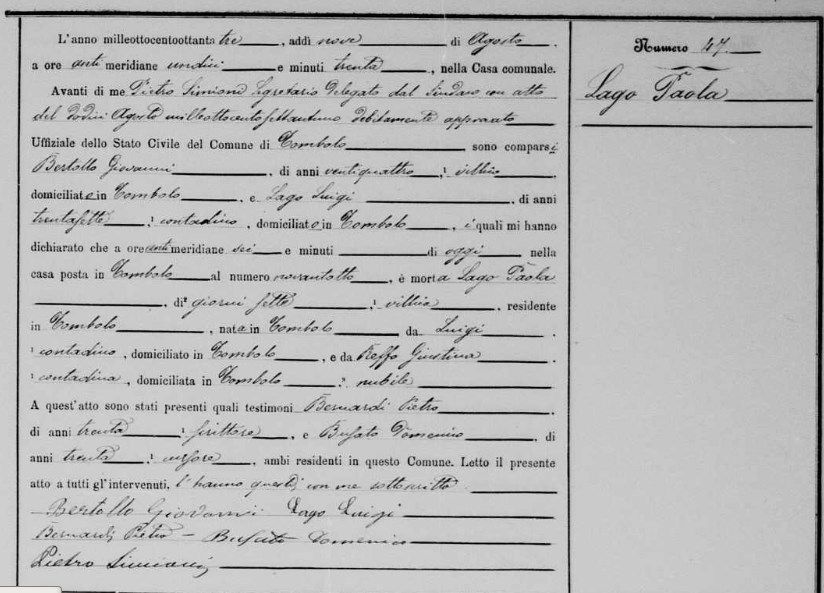 L'anno milleottocentoottanta tre, addì nove di Agosto.
a ore anti meridiane undici e minuti trenta, nella Casa comunale.
Avanti di me Pietro Simioni Segretario Delegato dal Sindaco con atto
del dodici Agosto milleottocentosettantuno debitamente approvato
Uffiziale dello Stato Civile del Comune di Tombolo sono comparsi
Bertollo Giovanni, di anni ventiquattro, villico
domiciliato in Tombolo, e Lago Luigi, di anni
trentasette, contadino, domiciliato in Tombolo, i quali mi hanno
dichiarato che a ore anti meridiane sei e minuti di oggi nella
casa posta in Tombolo al numero novantotto, è morta Lago Paola
, di giorni sette, villica, residente
in Tombolo, nata in Tombolo da Luigi
contadino, domiciliato in Tombolo, e da Reffo Giustina
contadina, domiciliata in Tombolo, nubile
A quest'atto sono stati presenti quali testimoni Bernardi Pietro
di anni trenta, scrittore, e Busato Domenico, di
anni trenta, cursore, ambi residenti in questo Comune. Letto il presente
atto a tutti gl'intervenuti, l'hanno questi con me sottoscritto
Bertollo Giovanni Lago Luigi
Bernardi Pietro - Busato Domenico
Pietro Simioni
Numero 47.
Lago Paola